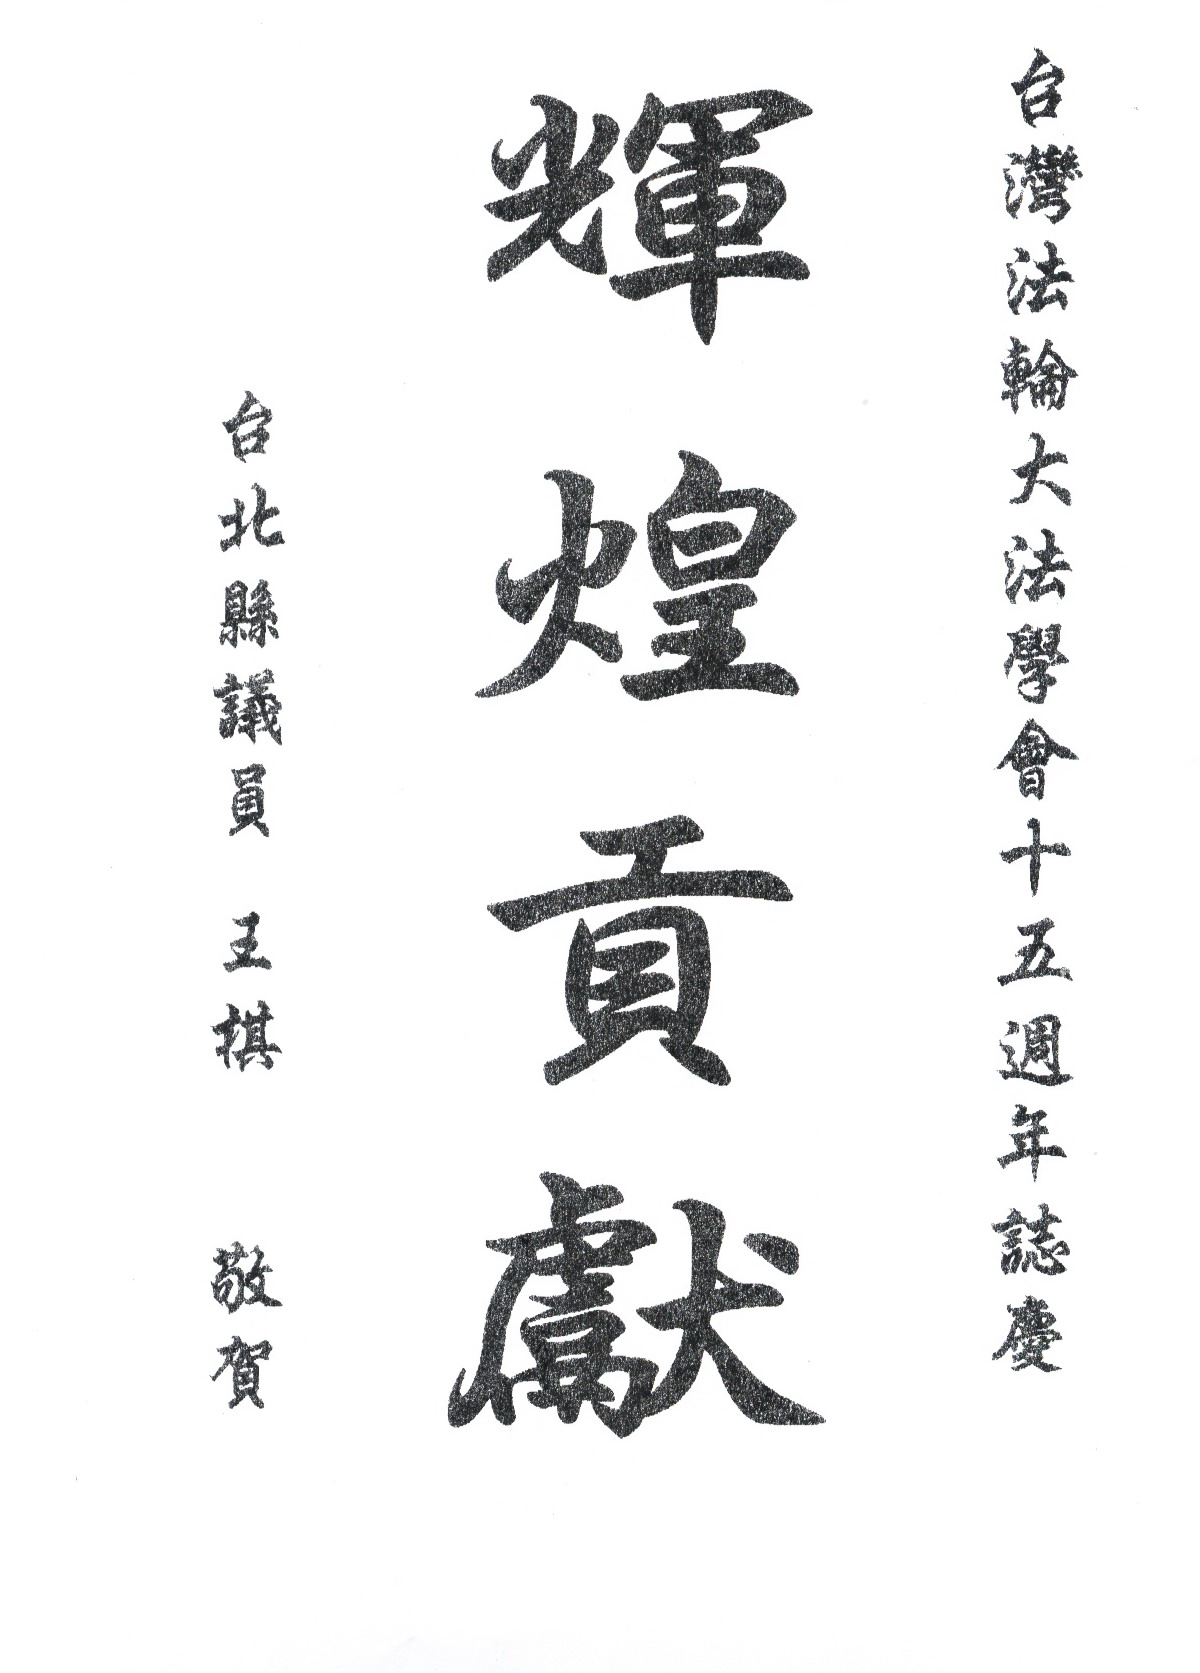 台灣法輪大法學會十五週年誌慶
輝煌貢獻
台北縣議員 王棋 敬賀